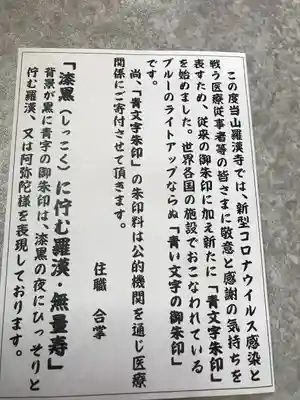 この度当山羅漢寺では、新型コロナウイルス感染と
戦う医療従事者等の皆さまに敬意と感謝の気持ちを
表すため、従来の御朱印に加え新たに「青文字朱印」
を始めました。世界各国の施設でおこなわれている
ブルーのライトアップならぬ「青い文字の御朱印」
です。
尚、「青文字朱印」の朱印料は公的機関を通じ医療
関係にご寄付させて頂きます。
住職 合掌
「漆黒（しっこく）に佇む羅漢・無量寿」
背景が黒に青字の御朱印は、漆黒の夜にひっそりと
佇む羅漢、又は阿弥陀様を表現しております。